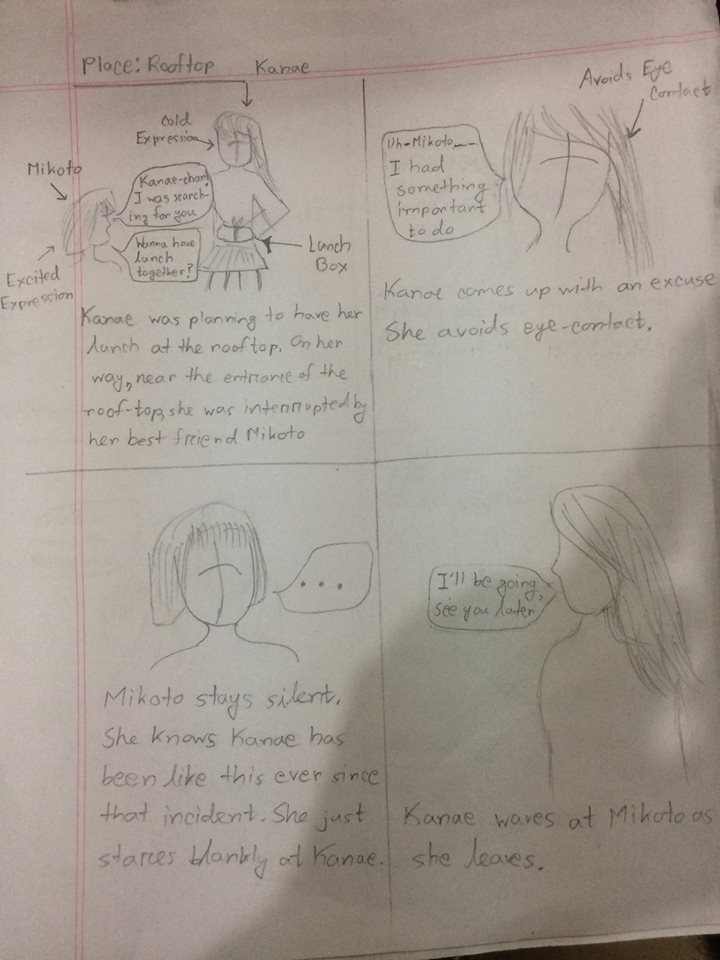 Place: Rooftop
Kanae
Cold
Expression
Mikoto
Kanae-chan!
I was search-
ing for you
Wanna have
lunch
together?
Excited
Expression
Lunch
Box
Kanae was planning to have her
lunch at the rooftop. On her
way, near the entrance of the
roof-top, she was interrupted by
her best friend Mikoto
Avoids Eye
Contact
Uh-Mikoto~~
I had
something
important
to do
Kanae comes up with an excuse
She avoids eye-contact.
...
Mikoto stays silent.
She knows Kanae has
been like this ever since
that incident. She just
stares blankly at Kanae.
I'll be going,
see you later
Kanae waves at Mikoto as
she leaves.